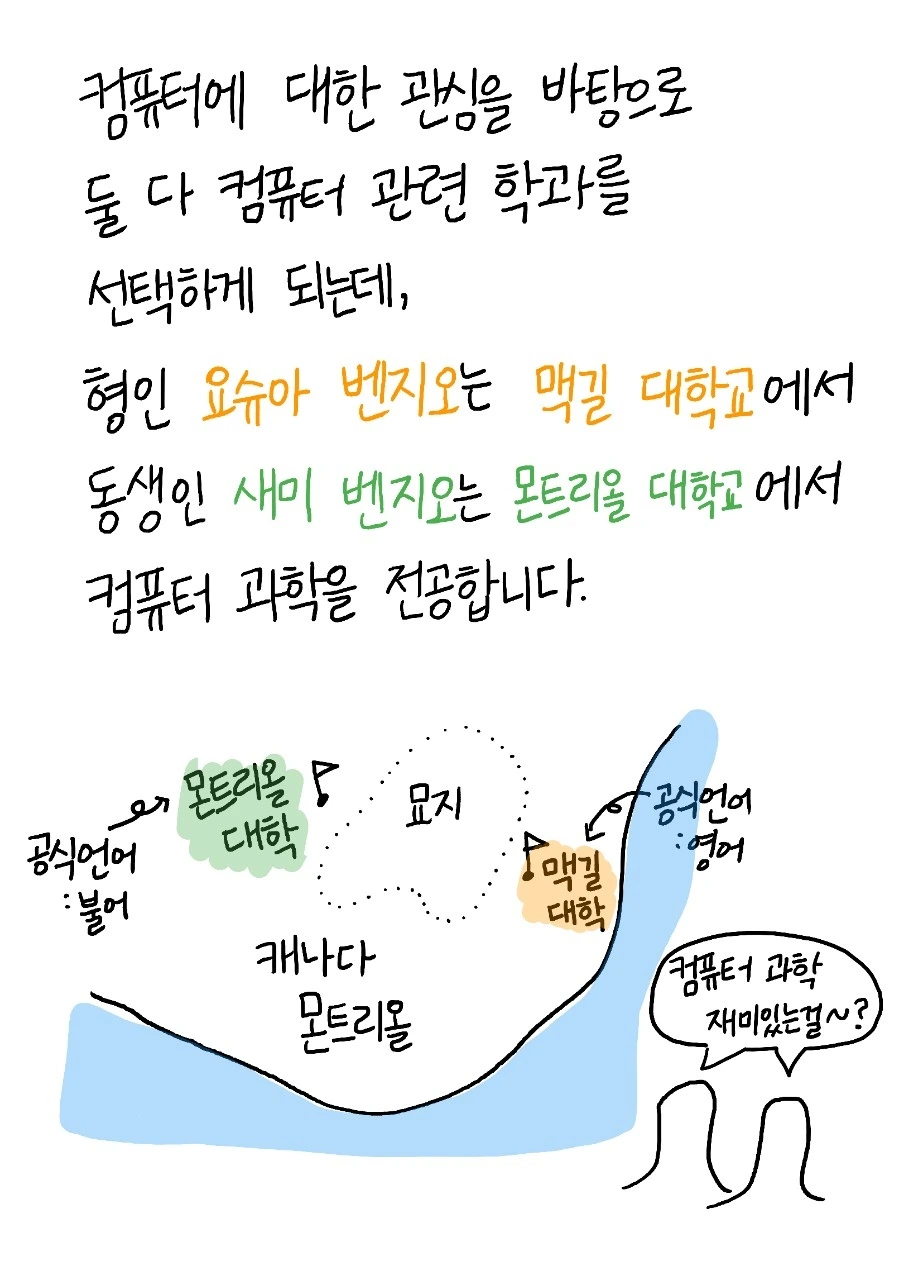 컴퓨터에 대한 관심을 바탕으로
둘 다 컴퓨터 관련 학과를
선택하게 되는데,
형인 요슈아 벤지오는 맥길 대학교에서
동생인 새미 벤지오는 몬트리올 대학교에서
컴퓨터 과학을 전공합니다.
몬트리올
대학
공식언어
:불어
묘지
맥길
대학
공식언어
:영어
캐나다
몬트리올
컴퓨터 과학
재미있는걸~?